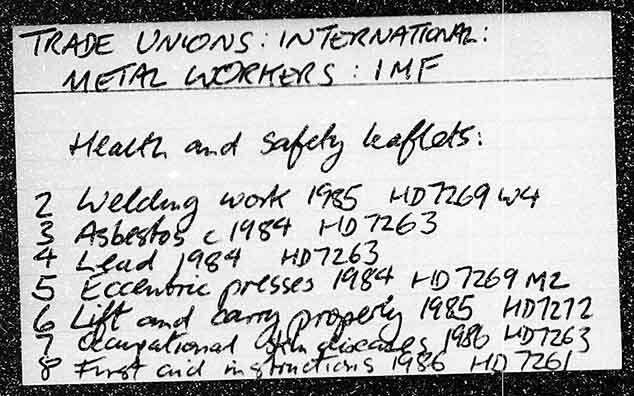 TRADE UNIONS: INTERNATIONAL:
METAL WORKERS: IMF
Health and safety leaflets:
2 Welding work 1985 HD7269 W4
3 Asbestos c 1984 HD7263
4 Lead 1984 HD7263
5 Eccentric presses 1984 HD7269 M2
6 Lift and carry properly 1985 HD7272
7 Occupational skin diseases 1986 HD7263
8 First aid instructions 1986 HD7261